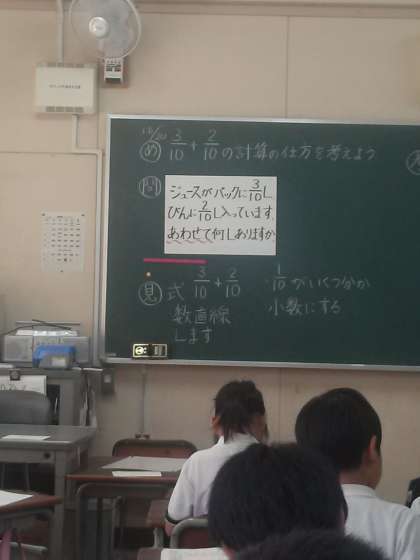 12/20
め 3/10 + 2/10 の計算の仕方を考えよう
問
ジュースがパックに 3/10 L
びんに 2/10 L入っています。
あわせて何Lありますか
見 式 3/10 + 2/10
数直線
します
1/10 がいくつ分か
小数にする